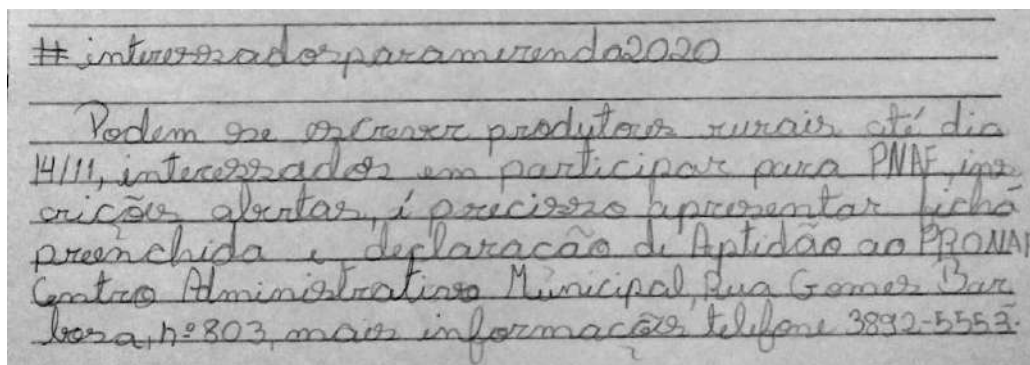 # interessadosparamerenda2020
Podem se escrever produtores rurais até dia
14/11, interessados em participar para PNAE, ins
crições abertas, é precisso apresentar ficha
preenchida e declaração de Aptidão ao PRONAF
Centro Administrativo Municipal, Rua Gomes Bar
bosa, nº 803, mais informações telefone 3892-5553.